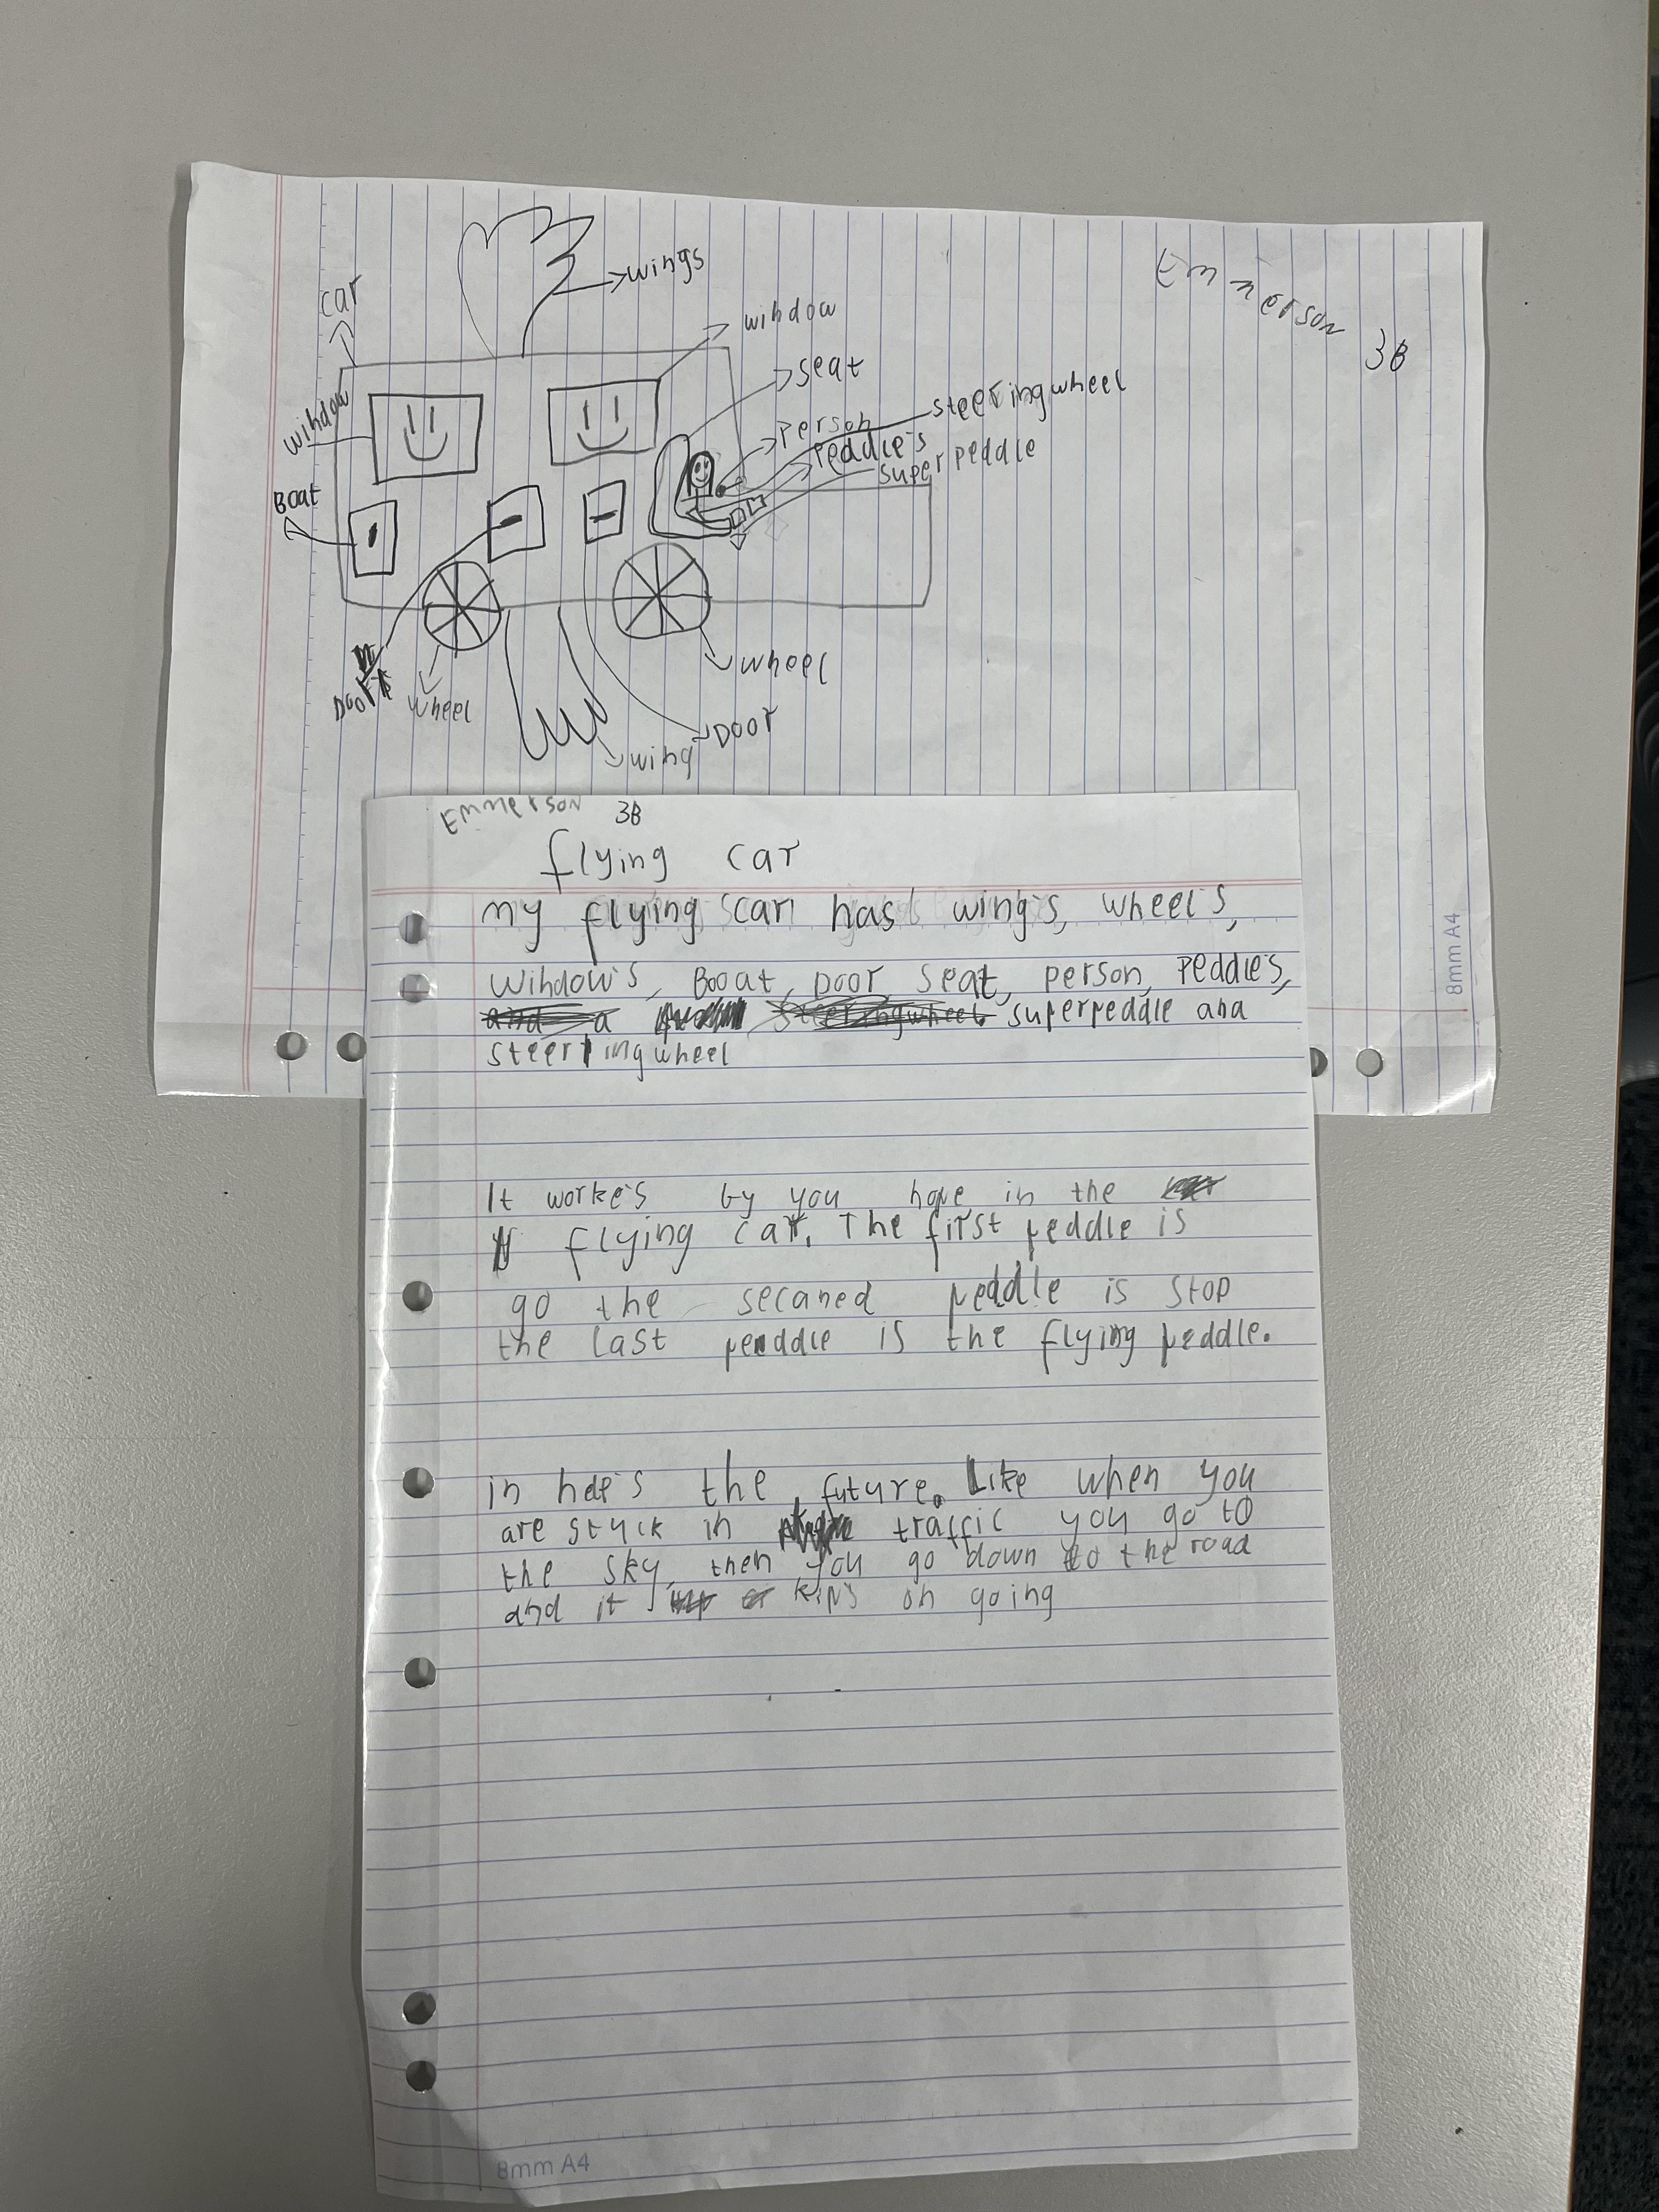 Emmerson
3B
car
wings
window
seat
steeringwheel
person
peddle's
super peddle
window
Boat
Door
wheel
wheel
Door
wing
8mm A4
Emmerson 3B
flying car
my flying car has wing's, wheel's,
window's, Booat, Door, seat, person, peddle's,
and a steeringwheel superpeddle and
steeringwheel
It worke's by you hope in the
flying car. The first peddle is
go the secaned peddle is stop
the last peddle is the flying peddle.
in help's the future. Like when you
are stuck in traffic you go to
the sky, then you go down to the road
and it kip's on going
8mm A4